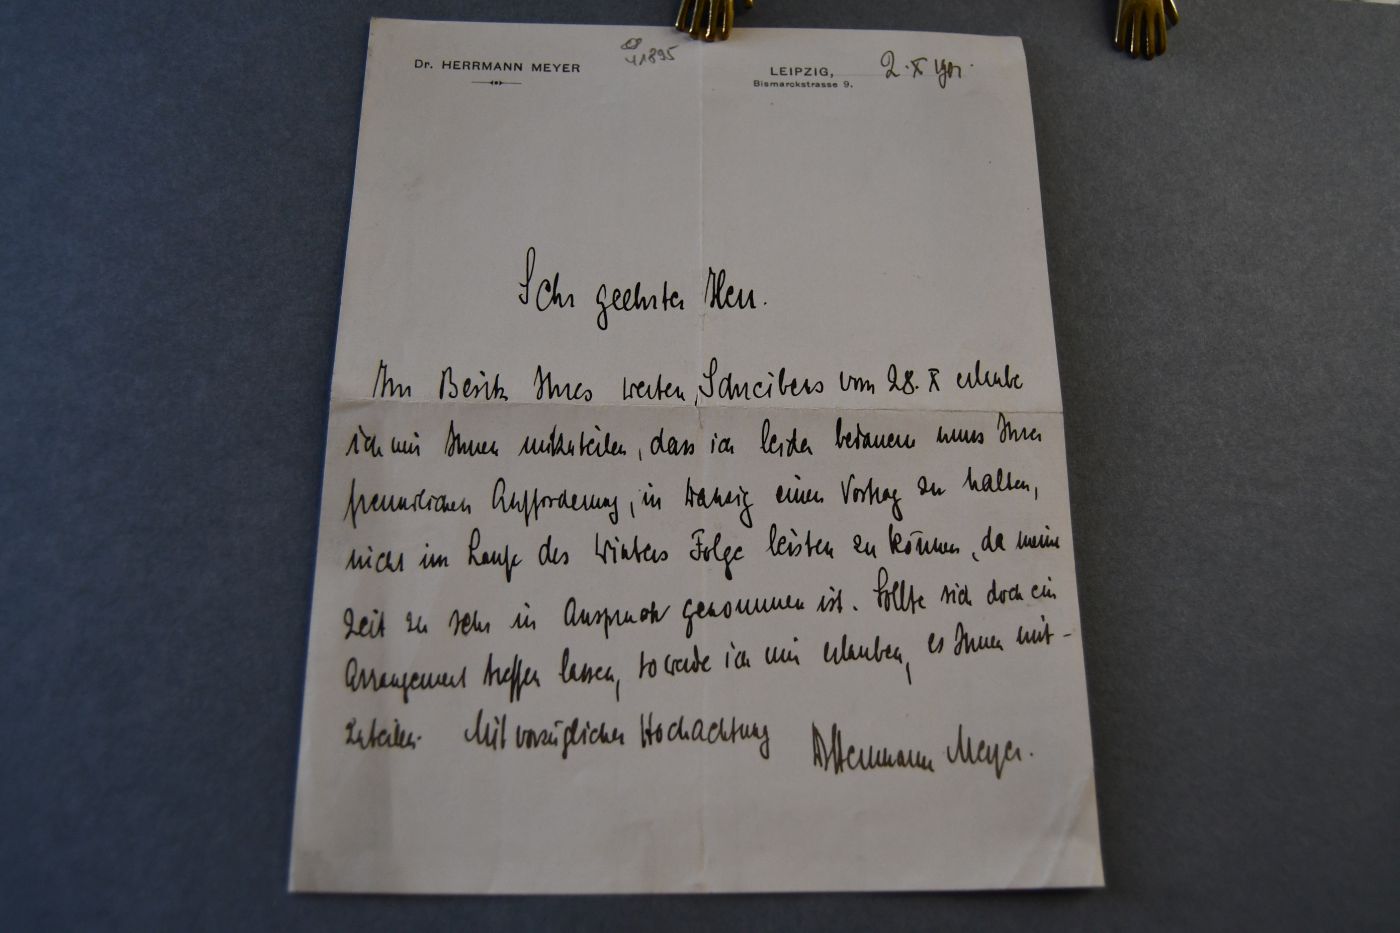 Dr. HERRMANN MEYER
LEIPZIG, 2. X 1901.
Bismarckstrasse 9.
41895
Sehr geehrter Herr.
Im Besitz Ihres werten Schreibens vom 28. X erlaube
ich mir Ihnen mitzuteilen, dass ich leider bedauern muss Ihrer
freundlichen Aufforderung, in Danzig einen Vortrag zu halten,
nicht im Laufe des Winters Folge leisten zu können, da meine
Zeit zu sehr in Anspruch genommen ist. Sollte sich doch ein
Arrangement treffen lassen, so werde ich mir erlauben, es Ihnen mit-
zuteilen. Mit vorzüglicher Hochachtung
Dr Herrmann Meyer.